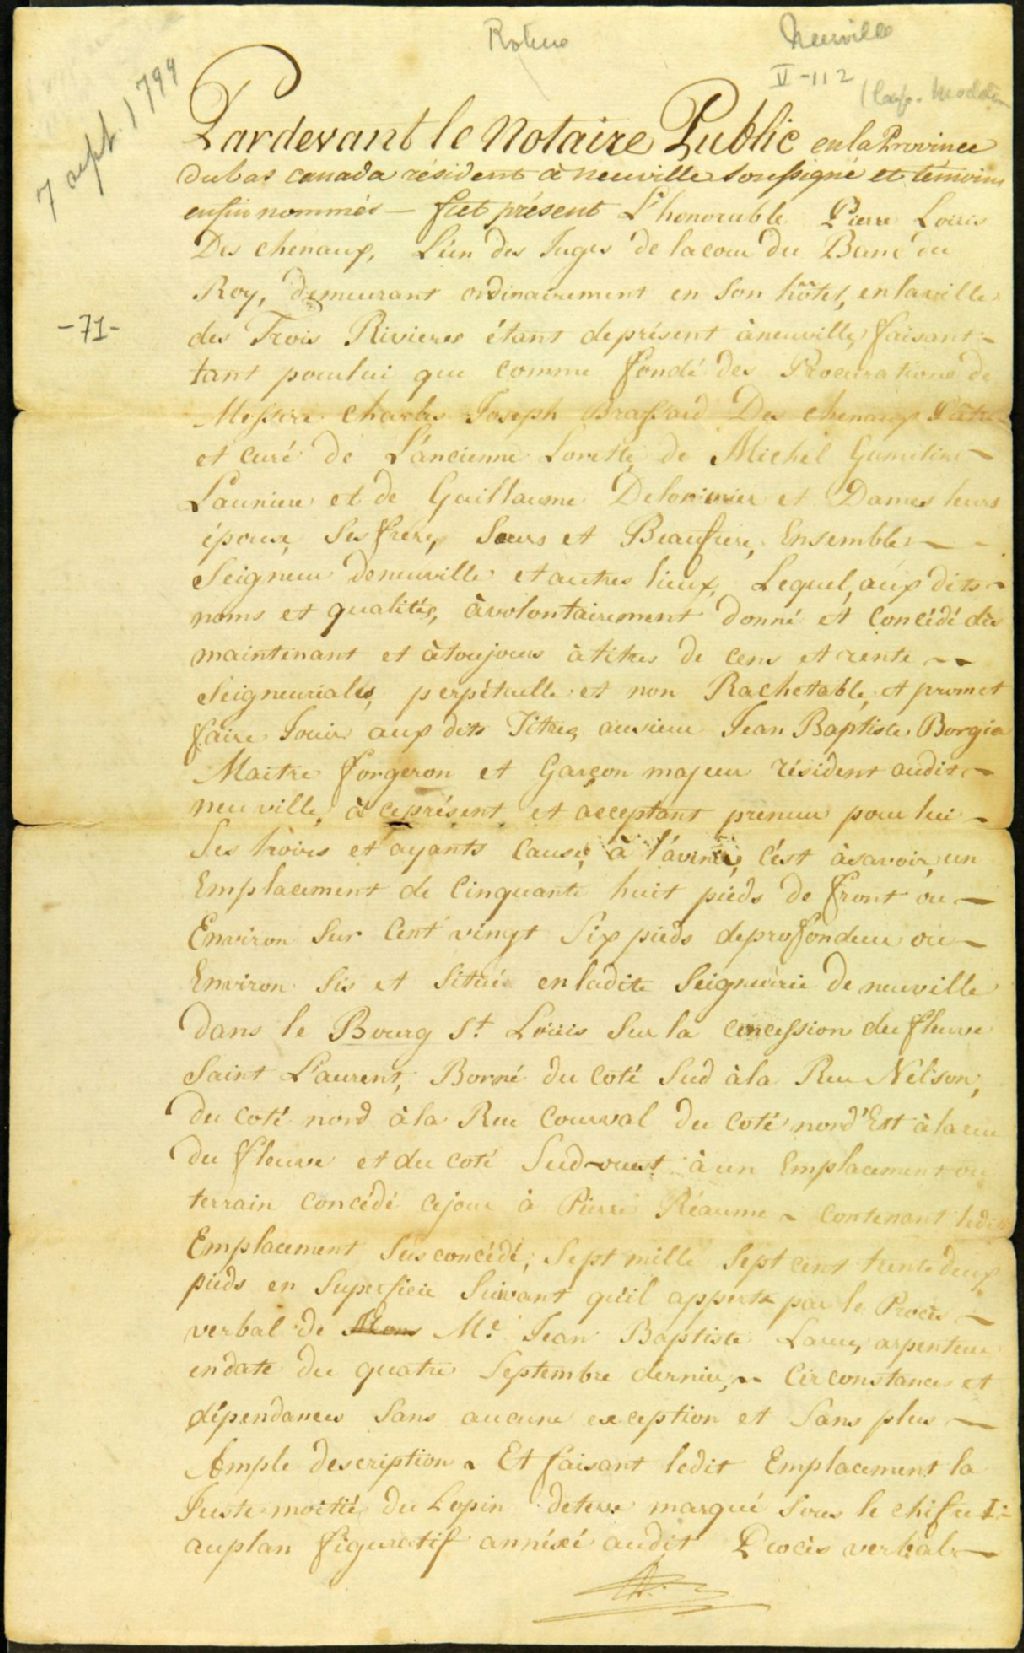 7 sept. 1799
Neuville
V-112
Pardevant le Notaire Public en la Province
du bas Canada résident à neuville soussigné et témoins
enfin nommés — fut présent L'honorable Pierre Louis
Des chenaux, L'un des Juges de la cour du Banc du
Roy, demeurant ordinairement en Son hôtel, en la ville
-71-
des Trois Rivieres étant deprésent àneuville, faisant -
tant pour lui que comme fondé des Procurations de
Messire Charles Joseph Brassard Des chenaux Pâtre
et curé de L'ancienne Lorette, de Michel —
et de Guillaume Delorimier et Dames leurs
épouses, Ses frere, Sœurs et Beaufrere, Ensemble —
Seigneur deneuville et autres lieux, Lequel, aux dits -
noms et qualités, àvolontairement donné et Concédé dès
maintenant et àtoujours àtitres de cens et rente --
Seigneuriales, perpétuelle et non Rachetable, et promet
faire Jouir aux dits Titres, ausieur Jean Baptiste Borgia
Maitre forgeron et Garçon majeur résident audit -
neuville, à ceprésent et acceptant preneur pour lui -
Ses hoirs et ayants Cause, à l'avenir, c'ést àsavoir, un
Emplacement de Cinquante huit pieds de front ou —
Environ Sur Cent vingt Six pieds deprofondeur ou —
Environ Sis et Situé en ladite Seigneurie de neuville
dans le Bourg St. Louis Sur la concession du fleuve
Saint Laurent, Borné du coté Sud à la Rue Nelson,
du coté nord à la Rue Courval du coté nord'Est à la rue
du fleuve et du coté Sud-ouest à un Emplacement ou
terrain concédé cejour à Pierre Réaume - contenant ledit
Emplacement Sus concédé, Sept mille Sept cent trente deux
pieds en Superficie Suivant qu'il appert par le Procès -
verbal de Mr. Jean Baptiste Larue, arpenteur
endate du quatre Septembre dernier, - Circonstances et
dépendances Sans aucune exception et Sans plus —
Ample description - Et faisant ledit Emplacement la
Juste moitié du Lopin deterre marqué Sous le chifre I -
auplan figuratif annéxé audit Procès verbal —